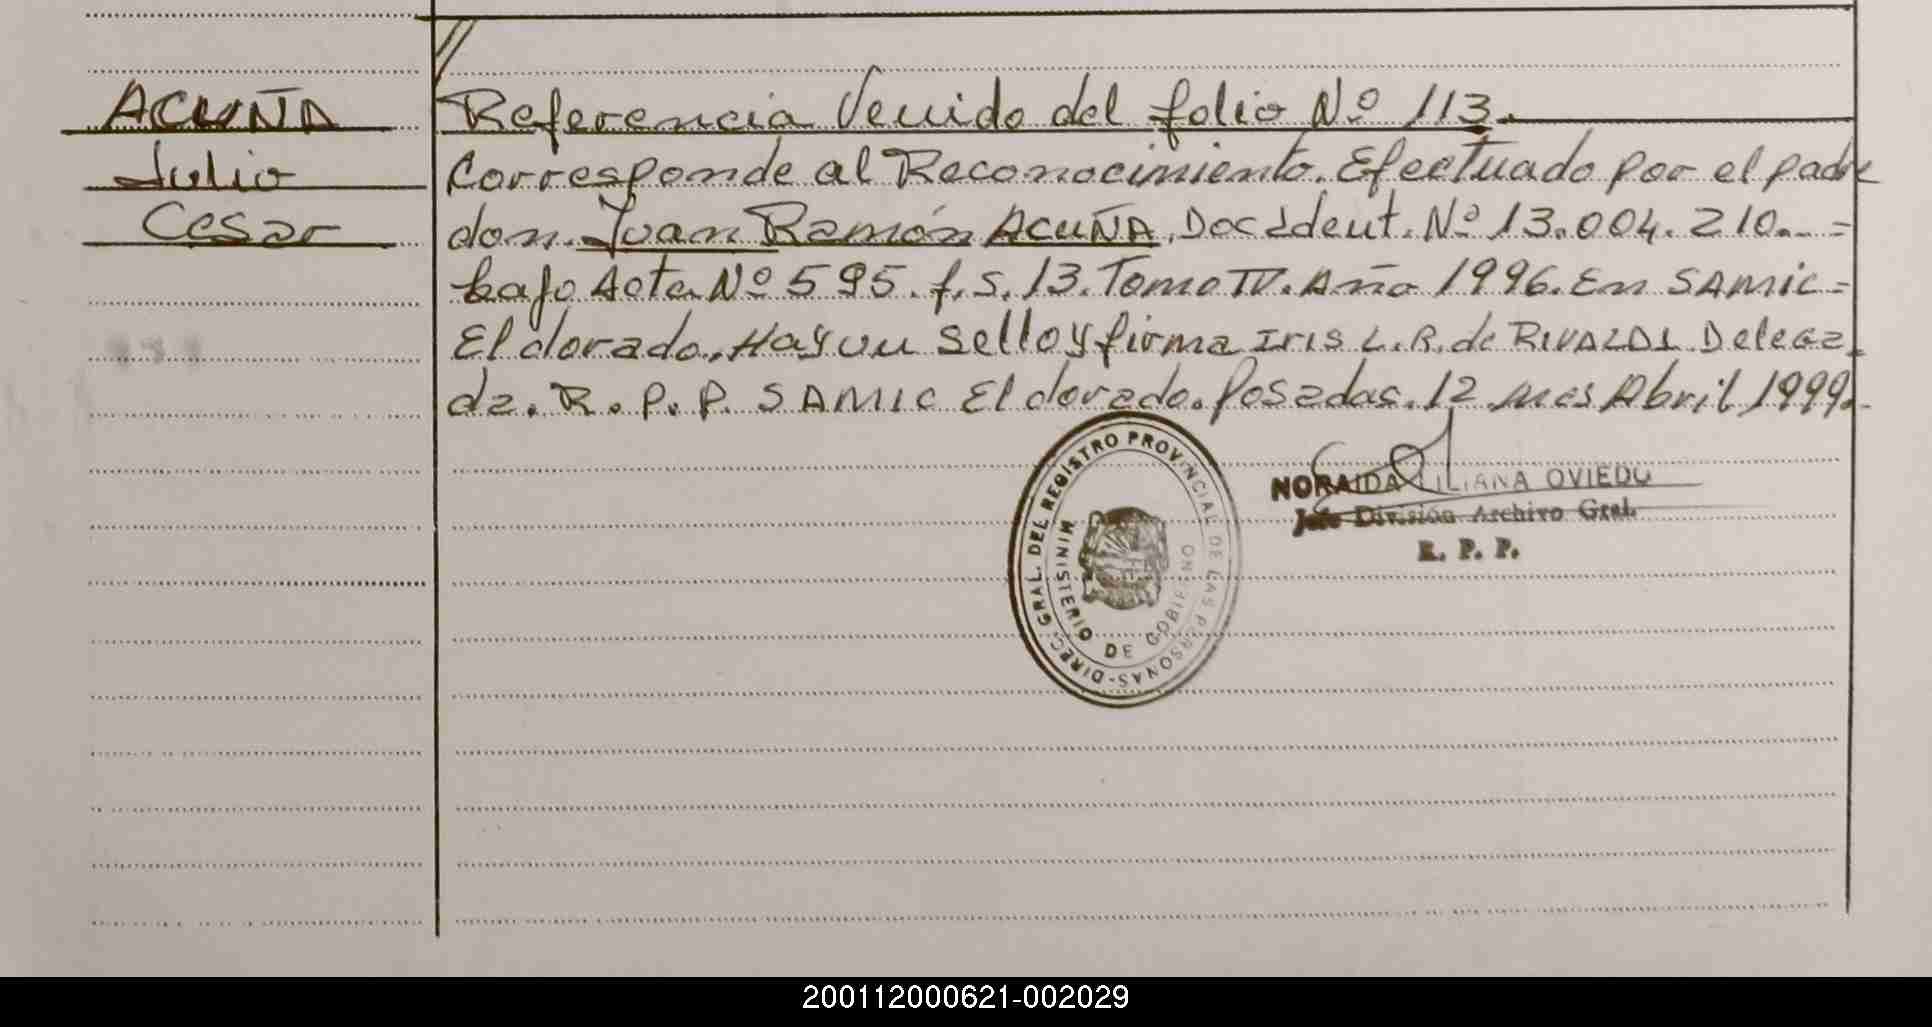 ACUÑA
Julio
Cesar
Referencia Venido del folio Nº 113.
Corresponde al Reconocimiento. Efectuado por el padre
don. Juan Ramón ACUÑA. Doc Ident. Nº 13.004.210.. =
bajo Acta Nº 595. f.s. 13. Tomo IV. Año 1996. En SAMIC =
El dorado. Hay un sello y firma Iris L.R. de RIVALDI Delega
da. R.P.P. SAMIC El dorado. Posadas. 12 mes Abril 1999.
DIREC. GRAL. DEL REGISTRO PROVINCIAL DE LAS PERSONAS-
MINISTERIO DE GOBIERNO
NORAIDA LILIANA OVIEDO
Jefe División Archivo Gral.
R. P. P.
200112000621-002029